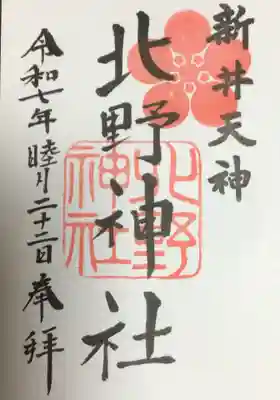 新井天神
北野神社
北野
神社
令和七年睦月二十二日 奉拝